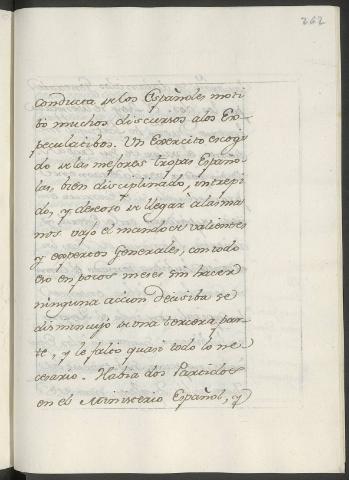 262
conducta de los Españoles moti
bó muchos discursos a los Es-
peculatibos. Un Exercito escogi
do de las mejores tropas Españo
las, bien disciplinado, intrepi
do, y deseoso de llegar à las ma
nos vajo el mando de valientes
y expertos Generales, con todo
eso en pocos meses sin hacer
ninguna accion decisiba se
disminuyó de una tercera par
te, y le faltó quasi todo lo ne
cesario. Habia dos Partidos
en el Ministerio Español, y